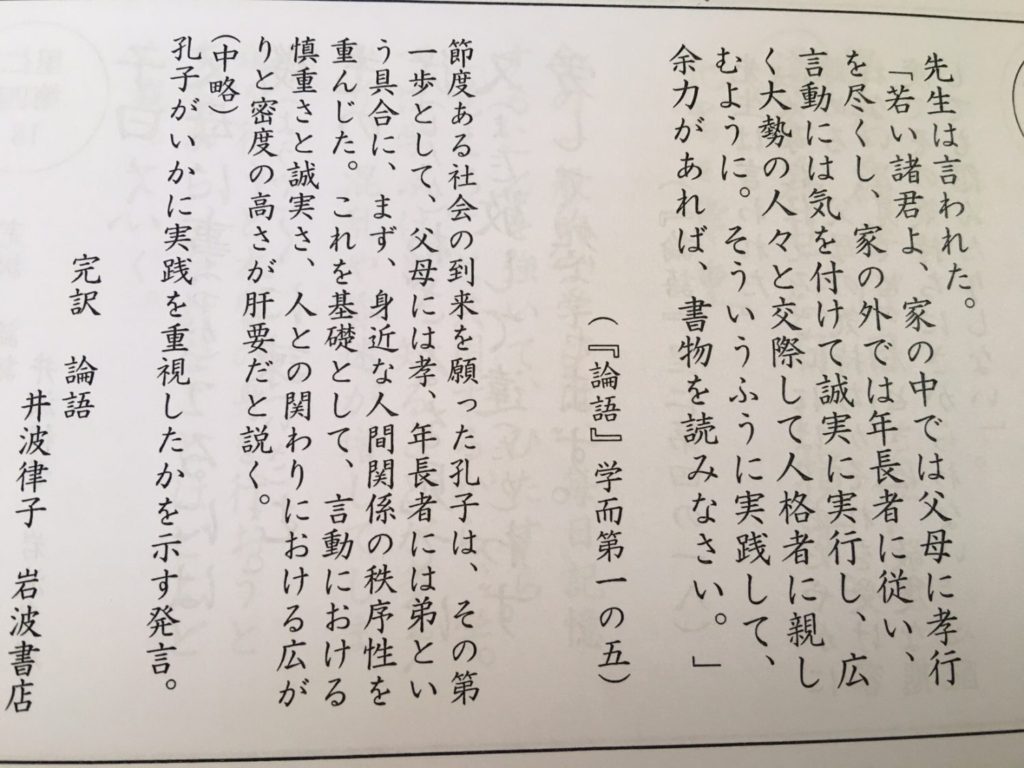 先生は言われた。
「若い諸君よ、家の中では父母に孝行
を尽くし、家の外では年長者に従い、
言動には気を付けて誠実に実行し、広
く大勢の人々と交際して人格者に親し
むように。そういうふうに実践して、
余力があれば、書物を読みなさい。」
(『論語』学而第一の五)
節度ある社会の到来を願った孔子は、その第
一歩として、父母には孝、年長者には弟とい
う具合に、まず、身近な人間関係の秩序性を
重んじた。これを基礎として、言動における
慎重さと誠実さ、人との関わりにおける広が
りと密度の高さが肝要だと説く。
(中略)
孔子がいかに実践を重視したかを示す発言。
完訳 論語
井波律子 岩波書店